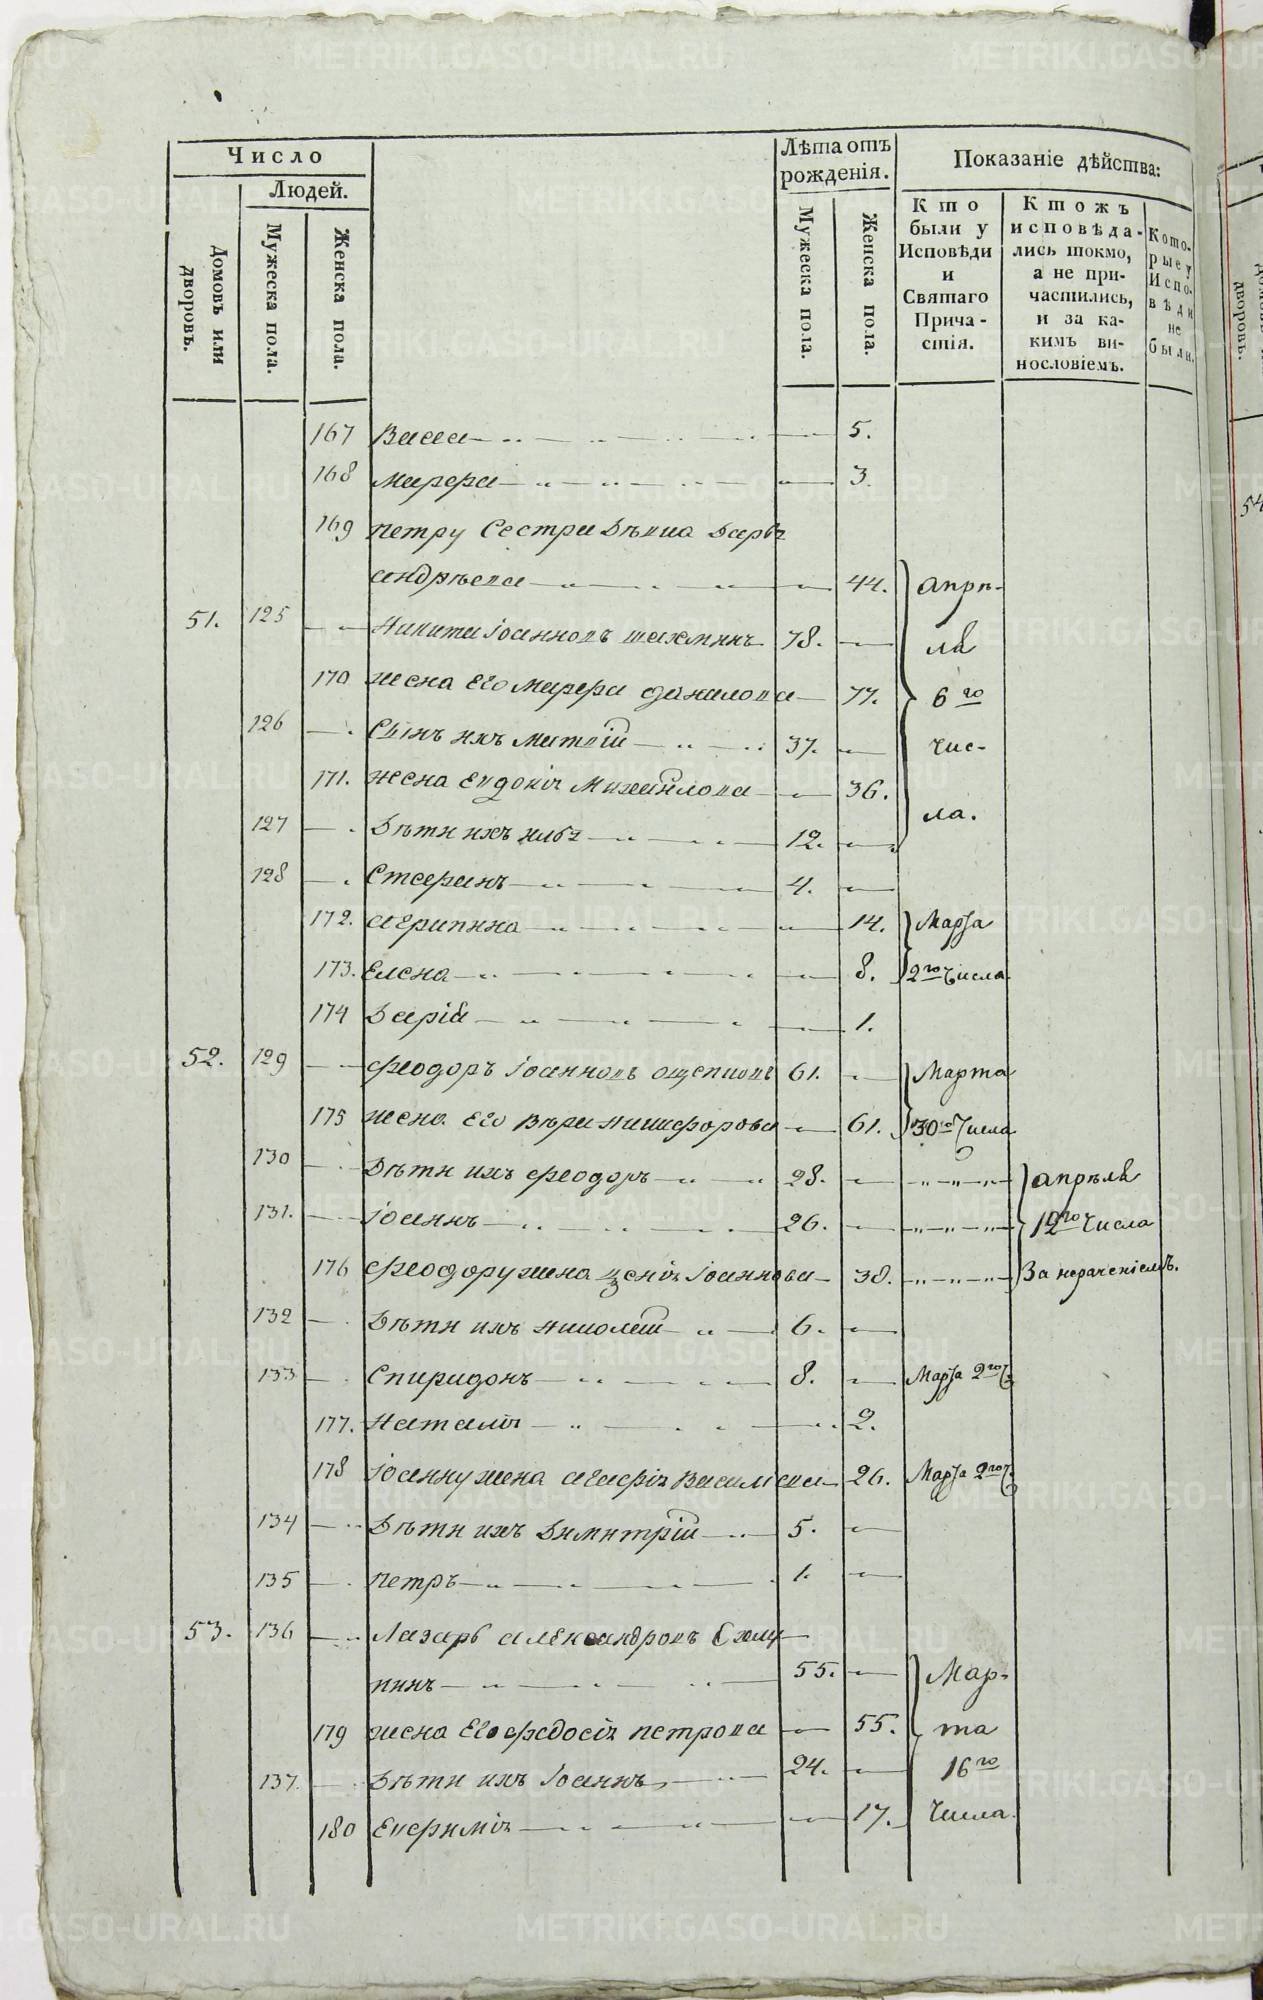 Число
Людей.
Домовъ или дворовъ.
Мужеска пола.
Женска пола.
Лѣта отъ рожденія.
Мужеска пола.
Женска пола.
Показаніе дѣйства:
Кто были у Исповѣди и Святаго Причастія.
Ктожъ исповѣдались токмо, а не причастились, и за какимъ винословіемъ.
Которые у Исповѣди не были.
167 Васса 5.
168 Марфа 3.
169 петру Сестра Дѣвка Дарья
андрѣева 44. апрѣ-
51. 125 Никита Іоанновъ шахминъ 78. ля
170 жена Его Марфа данилова 77. 6го
126 Сынъ ихъ Матвій 37. чис-
171. жена Евдокія Михайлова 36. ла.
127 Дѣти ихъ илья 12.
128 Стефанъ 4.
172. агрипина 14. Марта
173. Елена 8. 2го Числа
174 Дарія 1.
52. 129 феодоръ Іоанновъ ощепковъ 61. Марта
175 жена Его Вѣра Никифорова 61. 30го Числа
130 Дѣти ихъ феодоръ 28. апрѣля
131. Іоаннъ 26. 12го Числа
176 феодору жена Іоаннова 38. За нераченіемъ.
132 Дѣти ихъ Николай 6.
133 Спиридонъ 8. Марта 2го Ч.
177. Наталія 2.
178 Іоанну жена агафія Васильева 26. Марта 2го Ч.
134 Дѣти ихъ Димитрій 5.
135 петръ 1.
53. 136 Лазарь александровъ
55. Мар-
179 жена Его федосія петрова 55. та
137. Дѣти ихъ Іоаннъ 24. 16го
180 Евфимія 17. Числа.
дворовъ.
54
METRIKI.GASO-URAL.RU